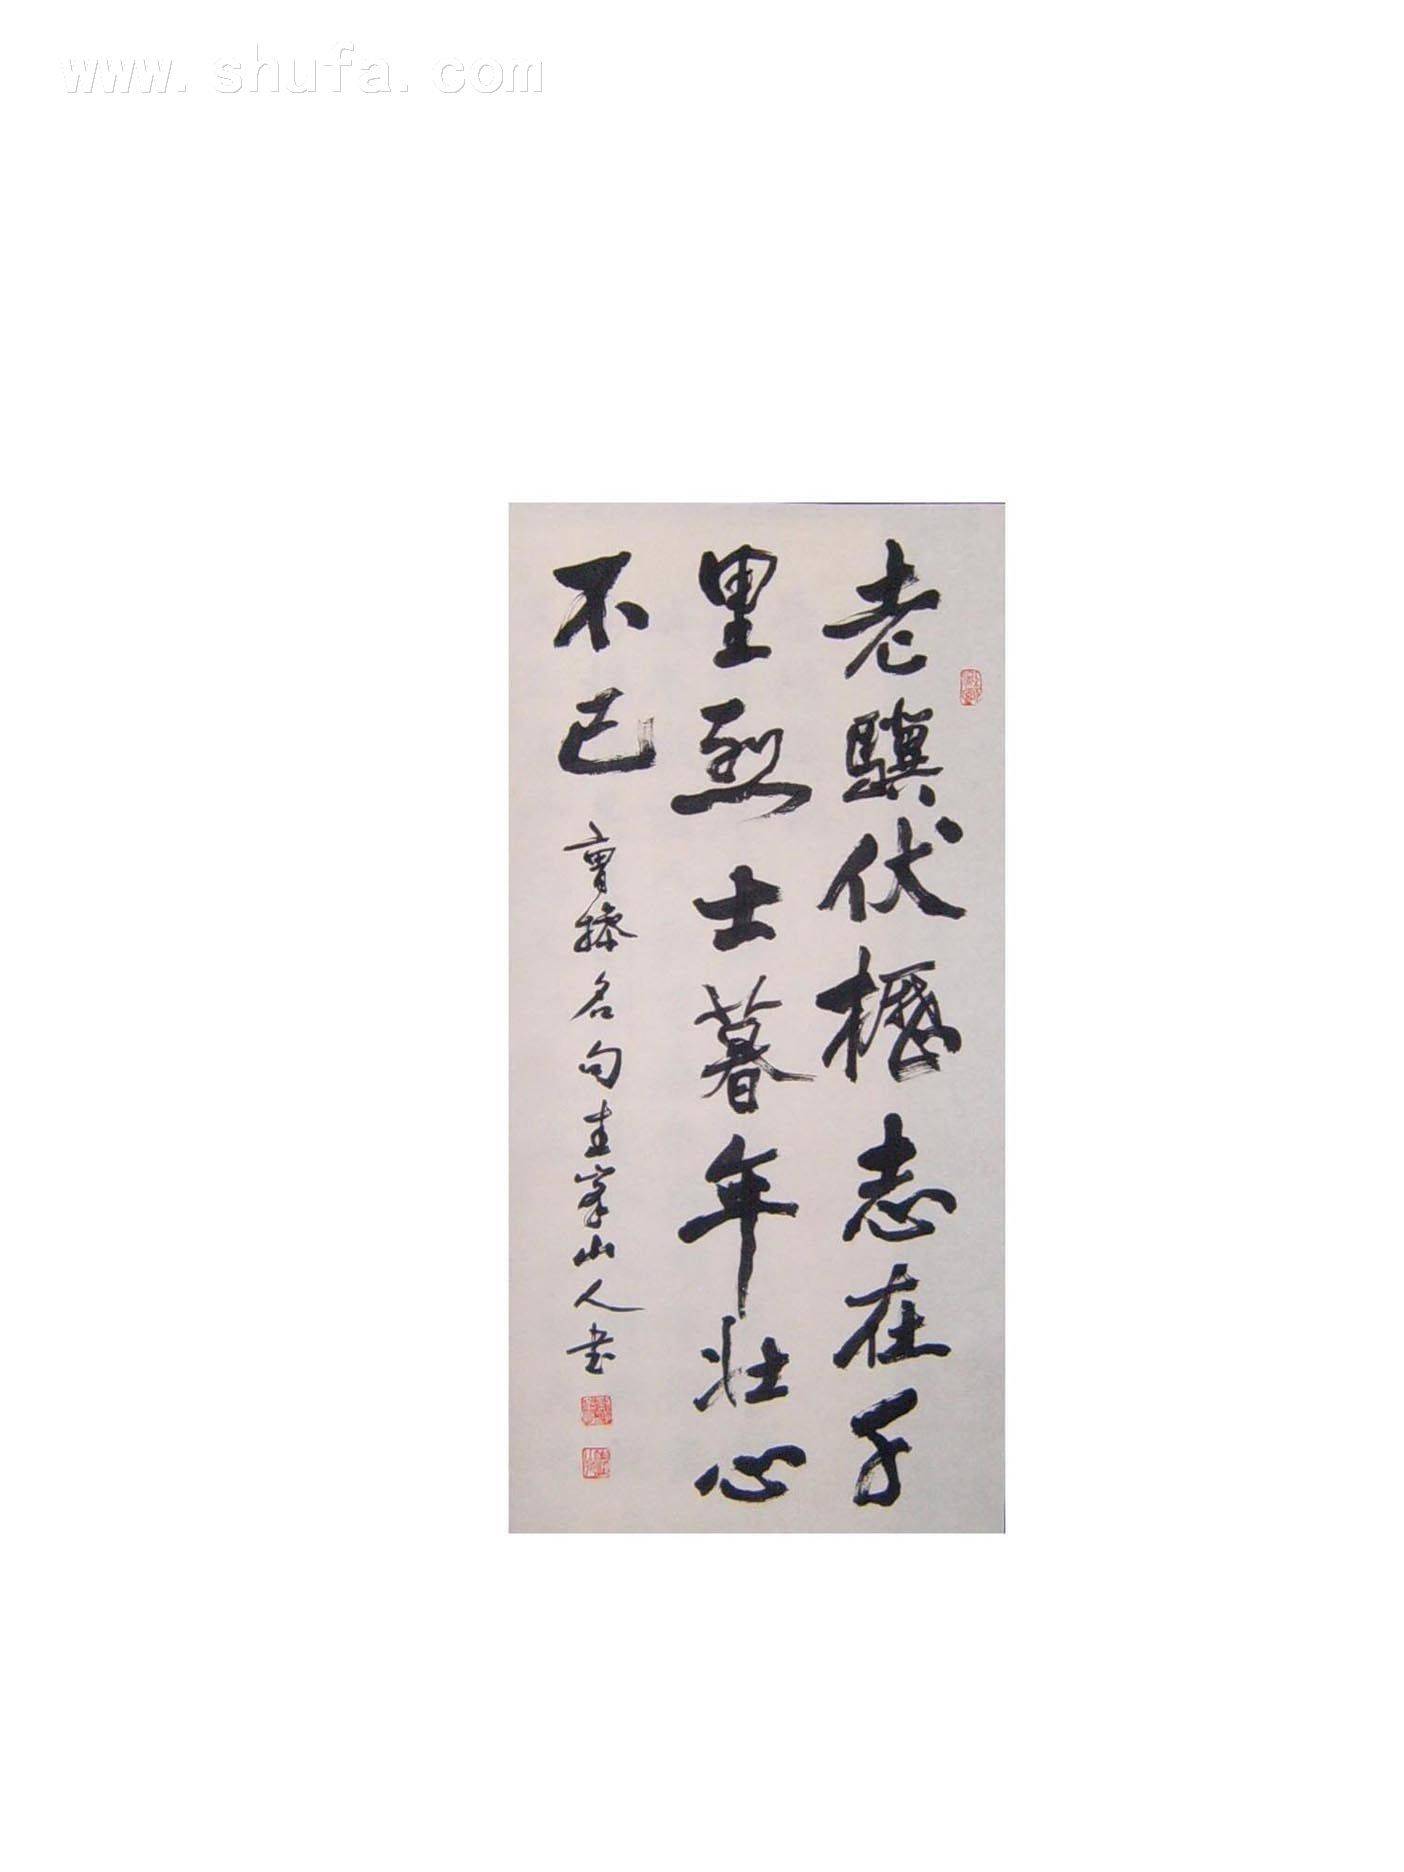 www.shufa.com
老驥伏櫪志在千
里烈士暮年壯心
不已
曹操名句圭峯山人书